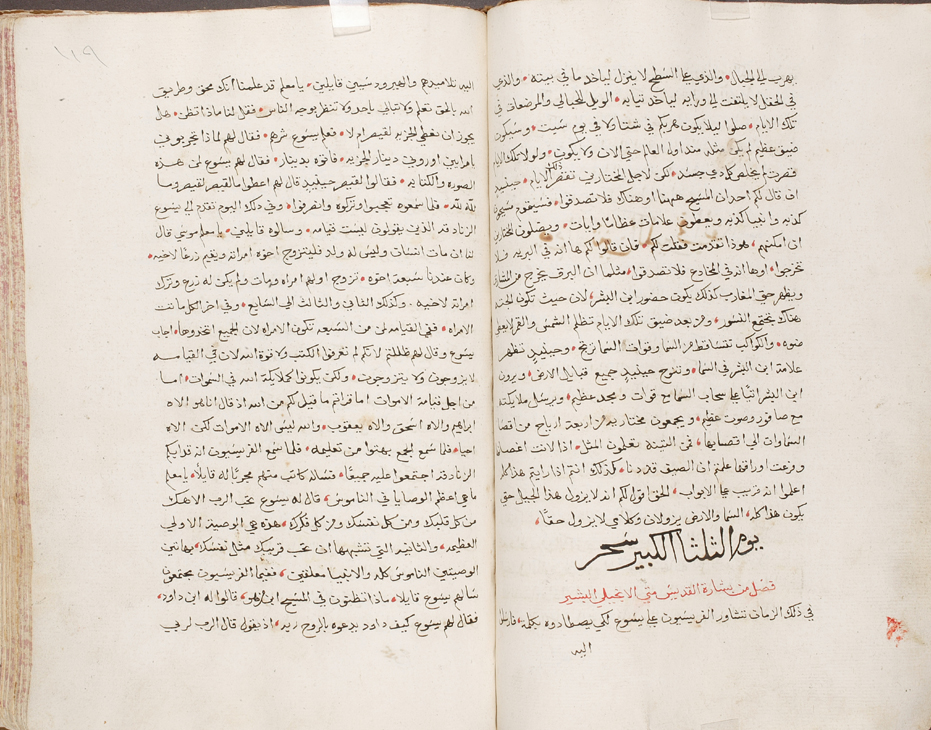 يهرب الي الجبال، والذي علي السطح لا ينزل لياخد ما في بيته، والذي
في الحقل لا يلتفت الي ورايه لياخد تيابه، الويل للحبالي والمرضعات في
تلك الايام، صلوا ليلا يكون هربكم في شتا ولا في يوم سبت، وسيكون
ضيق عظيم لم يكن مثله منذ اول العالم حتي الان ولا يكون، ولولا تلك الايام
قصرت لم يخلص كل دي جسد، لكن لاجل المختارين تقصر تلك الايام، حينيد
ان قال لكم احد ان المسيح هنا او هناك فلا تصدقوا، فسيقوم مسيحيا
كدبه وانبيا كدبه ويعطون علامات عظاما وايات، ويضلون المختارين
ان امكنهم، هودا تقدمت فقلت لكم، فان قالوا لكم ها انه في البريه فلا
تخرجوا، او ها انه في المخادع فلا تصدقوا، مثلما ان البرق يخرج من المشارق
ويظهر حتي المغارب كذلك يكون حضور ابن البشر، لان حيث تكون الجثه
هناك تجتمع النسور، ومن بعد ضيق تلك الايام تظلم الشمس والقمر لا يعطي
ضوه، والكواكب تتساقط من السما وقوات السما ترتج، وحينيد تظهر
علامة ابن البشر في السما، وتنوح حينيد جميع قبايل الارض، ويرون
ابن البشر اتيا علي سحاب السما مع قوات ومجد عظيم، ويرسل ملايكته
مع صافور وصوت عظيم، ويجمعون مختاريه من اربعة ارياح من اقصا
السماوات الي اقصايها، فمن التينه تعلمون المثل، اذا لانت اغصانها
وفرعت اوراقها علمتم ان الصيف قد دنا، كذلك انتم اذا رايتم هذا كله
اعلموا انه قريب علي الابواب، الحق اقول لكم انه لا يزول هذا الجيل حتي
يكون هذا كله، السما والارض يزولان وكلامي لا يزول حقا،
يوم الثلثا الكبير سحر
فصل من بشارة القديس متي الانجيلي البشير
في ذلك الزمان تشاور الفريسيون علي يسوع لكي يصطادوه بكلمه، فارسلوا
اليه
١١٩
اليه تلاميدهم والهيرودسيين قايلين، يا معلم قد علمنا انك محق وطريق
الله بالحق تعلم ولا تبالي باحد ولا تنظر بوجه الناس، فقل لنا ماذا تظن، هل
يجوز ان نعطي الجزيه لقيصر ام لا، فعلم يسوع شرهم، فقال لهم لماذا تجربوني
يا مرايين اوروني دينار الجزيه، فاتوه بدينار، فقال لهم يسوع لمن هذه
الصوره والكتابه، فقالوا القيصر حينيد قال لهم اعطوا ما لقيصر لقيصر وما
لله لله، فلما سمعوه تعجبوا وتركوه وانصرفوا، وفي ذلك اليوم تقدم الي يسوع
الزنادقه الذين يقولون ليست قيامه، وسالوه قايلين، يا معلم موسي قال
لنا ان مات انسان وليس له ولد فليتزوج اخوه امراته ويقيم زرعا لاخيه،
وكان عندنا سبعة اخوه، تزوج اولهم امراه ومات ولم يكن له زرع وترك
امراته لاخيه، وكذلك الثاني والثالث الي السابع، وفي اخر الكل ماتت
الامراه، ففي القيامه لمن من السبعه تكون الامراه لان الجميع اتخدوها، اجاب
يسوع وقال لهم ظللتم لانكم لم تعرفوا الكتب ولا قوة الله لان في القيامه
لا يزوجون ولا يتزوجون، ولكن يكونوا كملايكة الله في السموات، اما
من اجل قيامة الاموات اما قراتم ما قيل لكم من الله اذ قال انا هو الاه
ابراهيم والاه اسحق والاه يعقوب، والله ليس الاه الاموات لكن الاه
احيا، فلما سمع الجمع بهتوا من تعليمه، فلما سمع الفريسيون انه قد ابكم
الزنادقه اجتمعوا عليه جميعا، فساله كاتب منهم مجربا له قايلا، يا معلم
ما هي اعظم الوصايا في الناموس، قال له يسوع تحب الرب الاهك
من كل قلبك ومن كل نفسك ومن كل فكرك، هذه هي الوصية الاولي
العظيمه، والثانيه التي تشبهها ان تحب قريبك مثل نفسك، بهاتين
الوصيتين الناموس كله والانبيا معلقين، فقيما الفريسيون مجتمعون
سالهم يسوع قايلا، ماذا تظنون في المسيح ابن من هو، قالوا له ابن داود،
فقال لهم يسوع كيف داود يدعوه بالروح ربه، اذ يقول قال الرب لربي